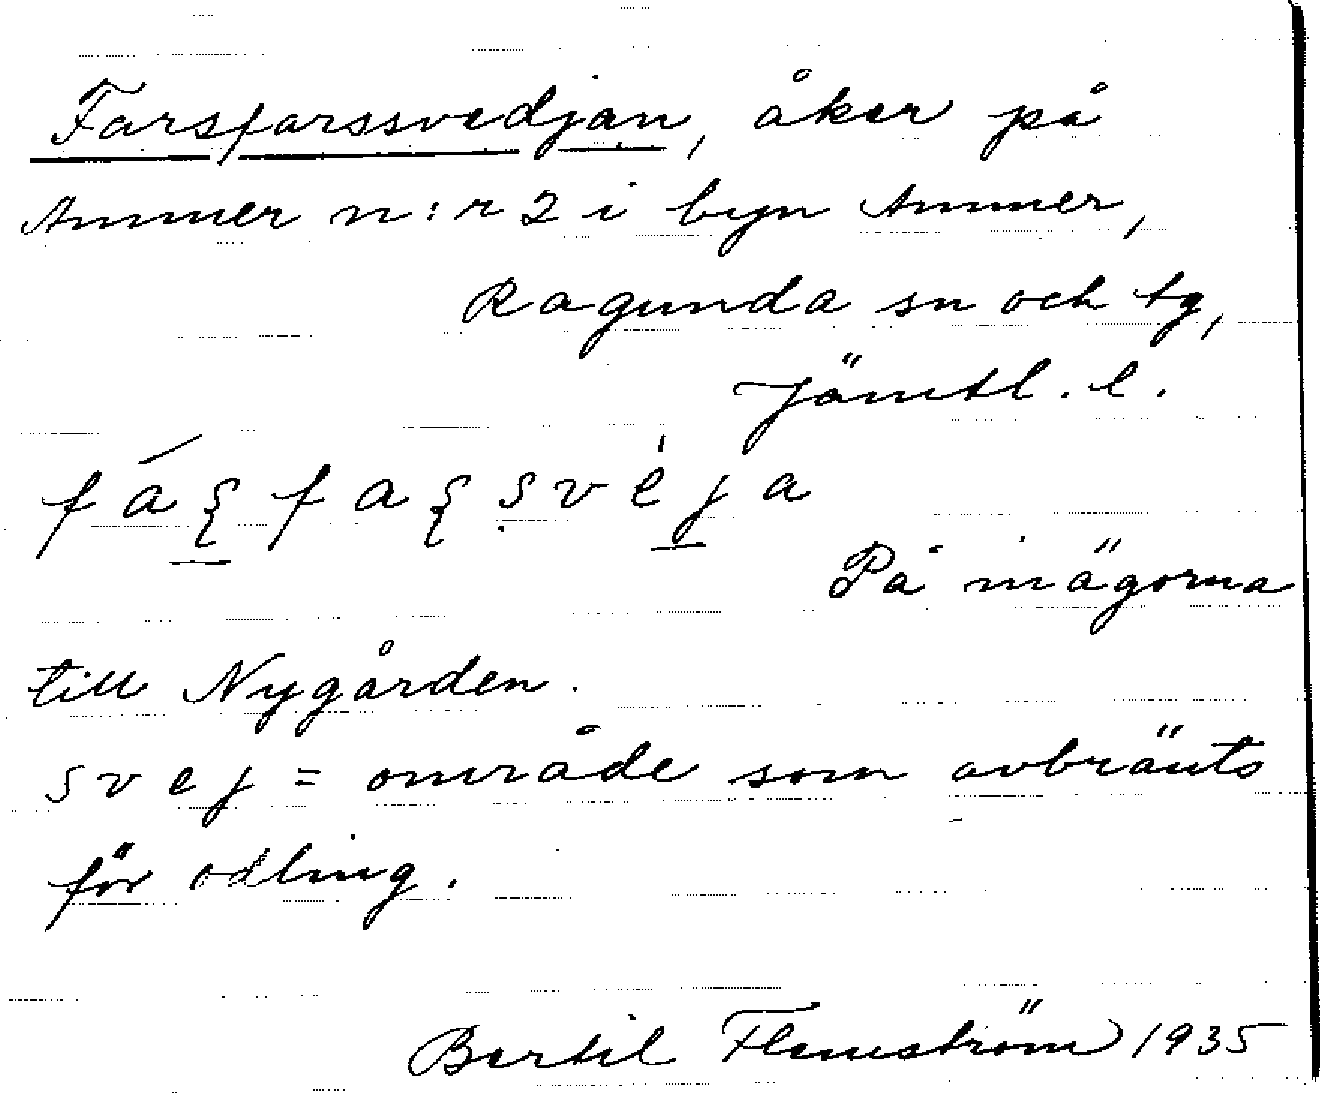 Farsfarssvedjan, åker på
Ammer n:r 2 i byn Ammer,
Ragunda sn och tg,
Jämtl. l.
På inägorna
till Nygården.
svej = område som avbränts
för odling.
Bertil Flemström 1935